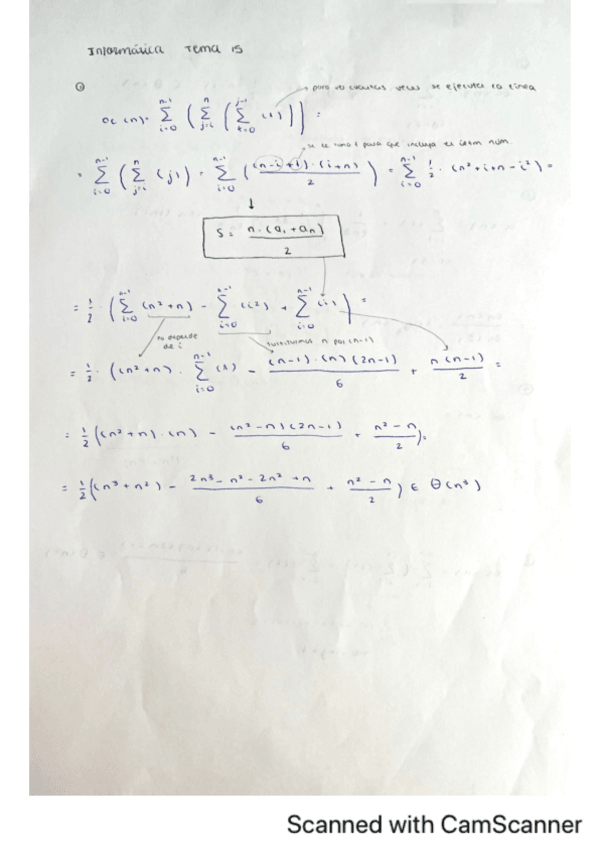 Informática Tema 15
para ver cuantas veces se ejecuta la línea
∑_{i=0}^{n-1} (∑_{j=i}^{n} (∑_{k=0}^{j-1} (1))) =
= ∑_{i=0}^{n-1} (∑_{j=i}^{n} (j)) = ∑_{i=0}^{n-1} ((n-i+1)·(i+n) / 2) = ∑_{i=0}^{n-1} 1/2 · (n²+i+n-i²) =
S = n·(a₁+aₙ) / 2
= 1/2 · (∑_{i=0}^{n-1} (n²+n) - ∑_{i=0}^{n-1} (i²) + ∑_{i=0}^{n-1} (i)) =
no depende de i
sustituimos n por (n-1)
= 1/2 · ((n²+n) · ∑_{i=0}^{n-1} (1) - (n-1)·(n)(2n-1) / 6 + n(n-1) / 2 =
= 1/2 ((n²+n)·(n) - (n²-n)(2n-1) / 6 + n²-n / 2) =
= 1/2 ((n³+n²) - 2n³-n²-2n²+n / 6 + n²-n / 2) ∈ Θ(n³)
Scanned with CamScanner